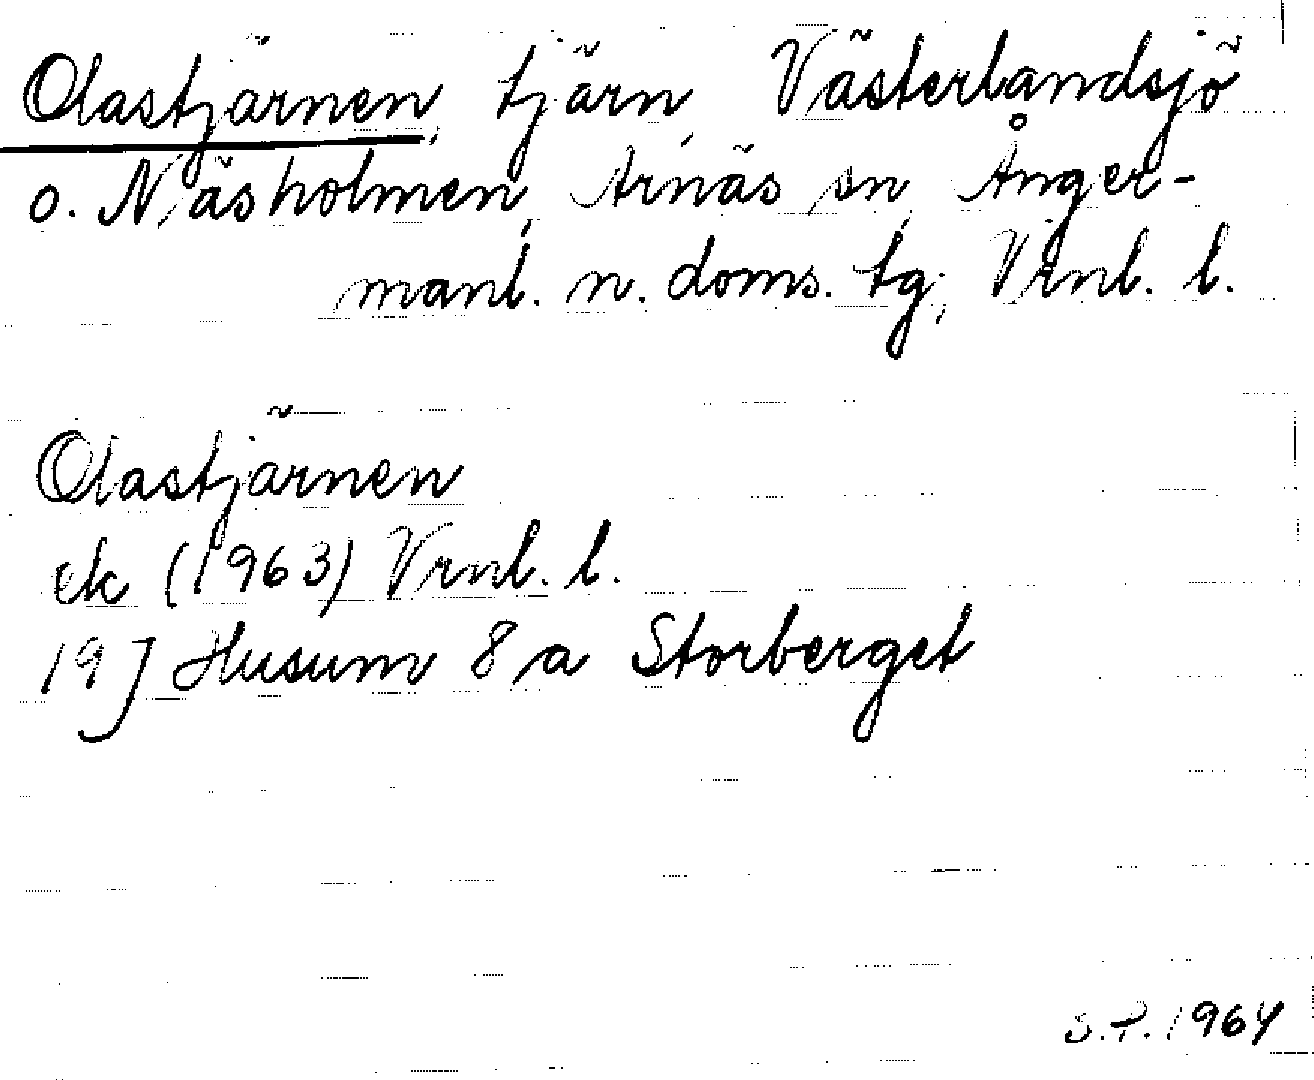 Olastjärnen, tjärn, Västerlandsjö
o. Näsholmen, Arnäs sn, Ånger-
manl. n. doms. tg., Vrnl. l.
Olastjärnen
ek (1963) Vrnl. l.
19 J Husum 8 a Storberget
S.P. 1964